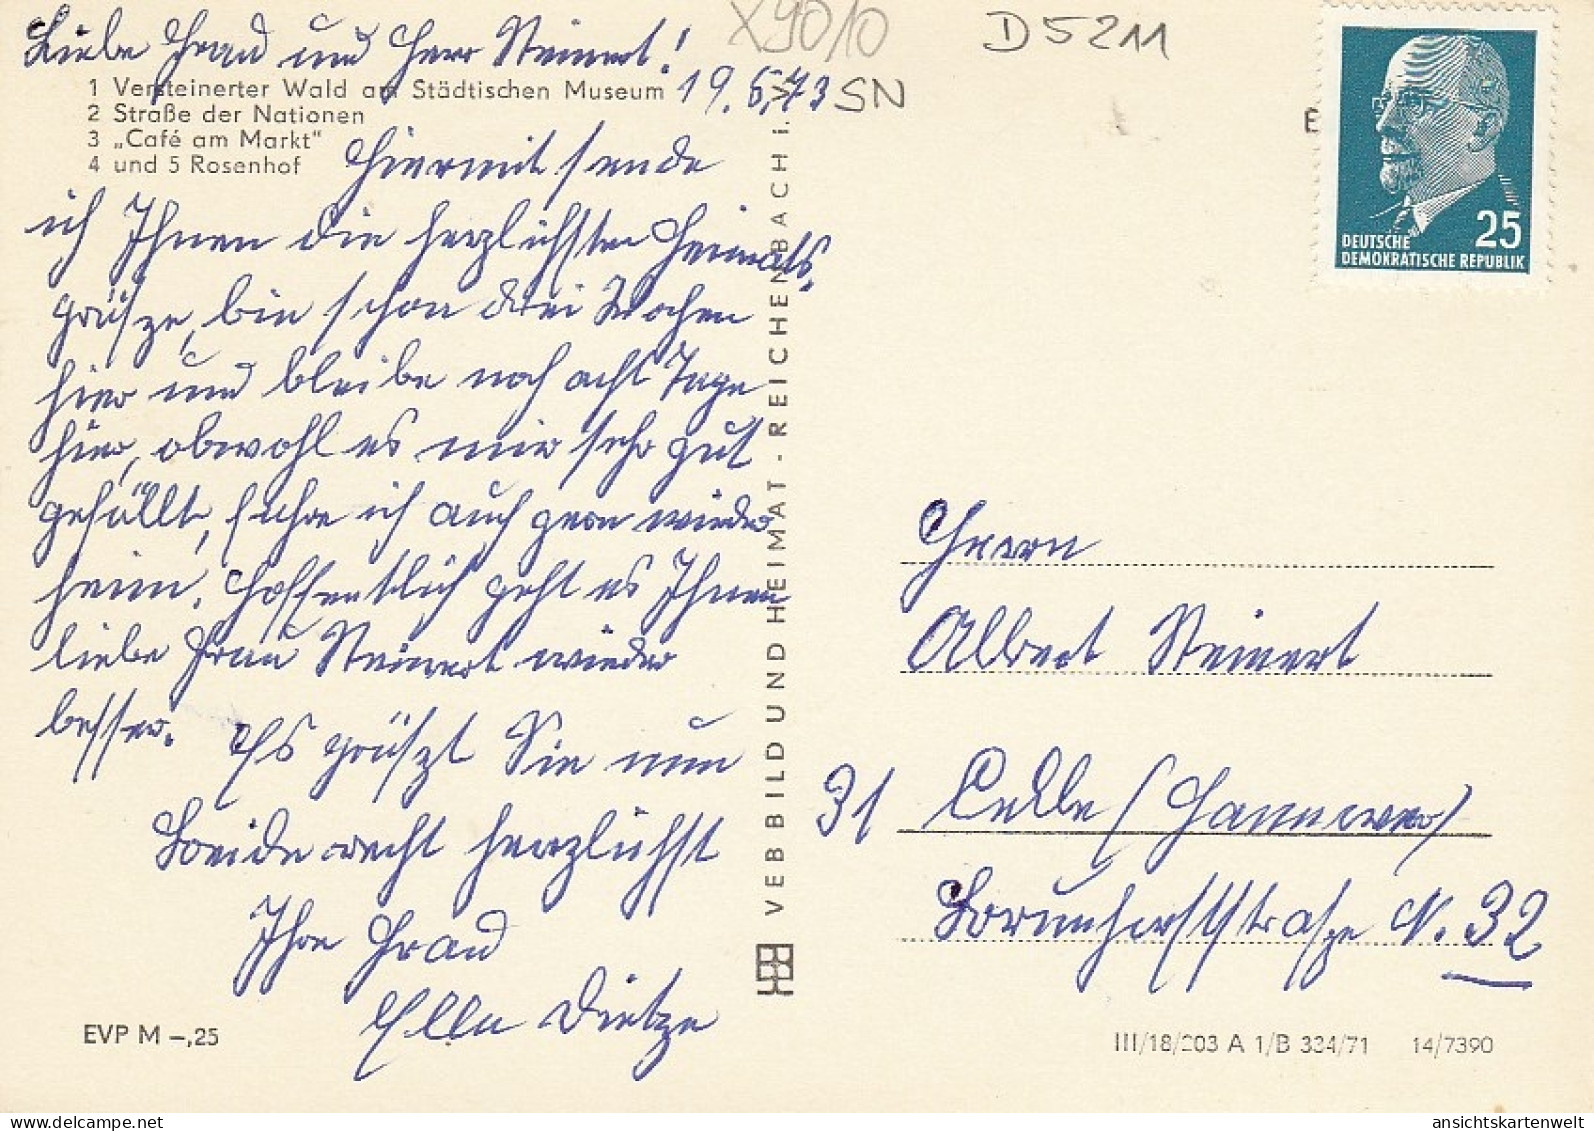 Liebe Frau und Herr Steinert!
19.6.73
1 Versteinerter Wald am Städtischen Museum
2 Straße der Nationen
3 „Café am Markt"
4 und 5 Rosenhof
Hiermit sende
ich Ihnen die herzlichsten Heimats-
grüsze, bin schon drei Wochen
hier und bleibe noch acht Tage
hier, obwohl es mir sehr gut
gefällt, fahre ich auch gern wieder
heim. Hoffentlich geht es Ihnen
liebe Frau Steinert wieder
besser. Es grüszt Sie nun
Beide recht herzlichst
Ihre Frau
Ella Dietze
EVP M –,25
VEB BILD UND HEIMAT · REICHENBACH i. V.
X9010
SN
D 5211
E
25
DEUTSCHE
DEMOKRATISCHE REPUBLIK
Herrn
Albert Steinert
31 Celle (Hannover)
N. 32
III/18/203 A 1/B 334/71 14/7390
delcampe.net
ansichtskartenwelt